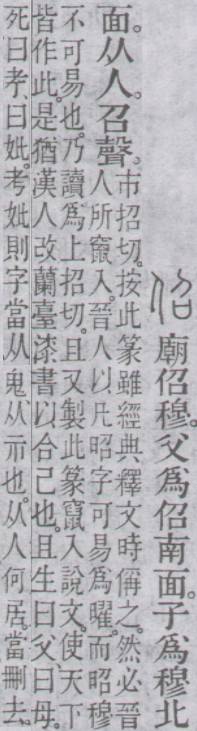 佋 廟佋穆。父爲佋南面。子爲穆北
面。从人。召聲。
市招切。按此篆雖經典釋文時偁之。然必晉
人所竄入。晉人以凡昭字可易爲曜。而昭穆
不可易也。乃讀爲上招切。且又製此篆竄入說文。使天下
皆作此。是猶漢人改蘭臺漆書以合己也。且生曰父、曰母。
死曰考、曰妣。考妣則字當从鬼从示也。从人何居。當刪去。